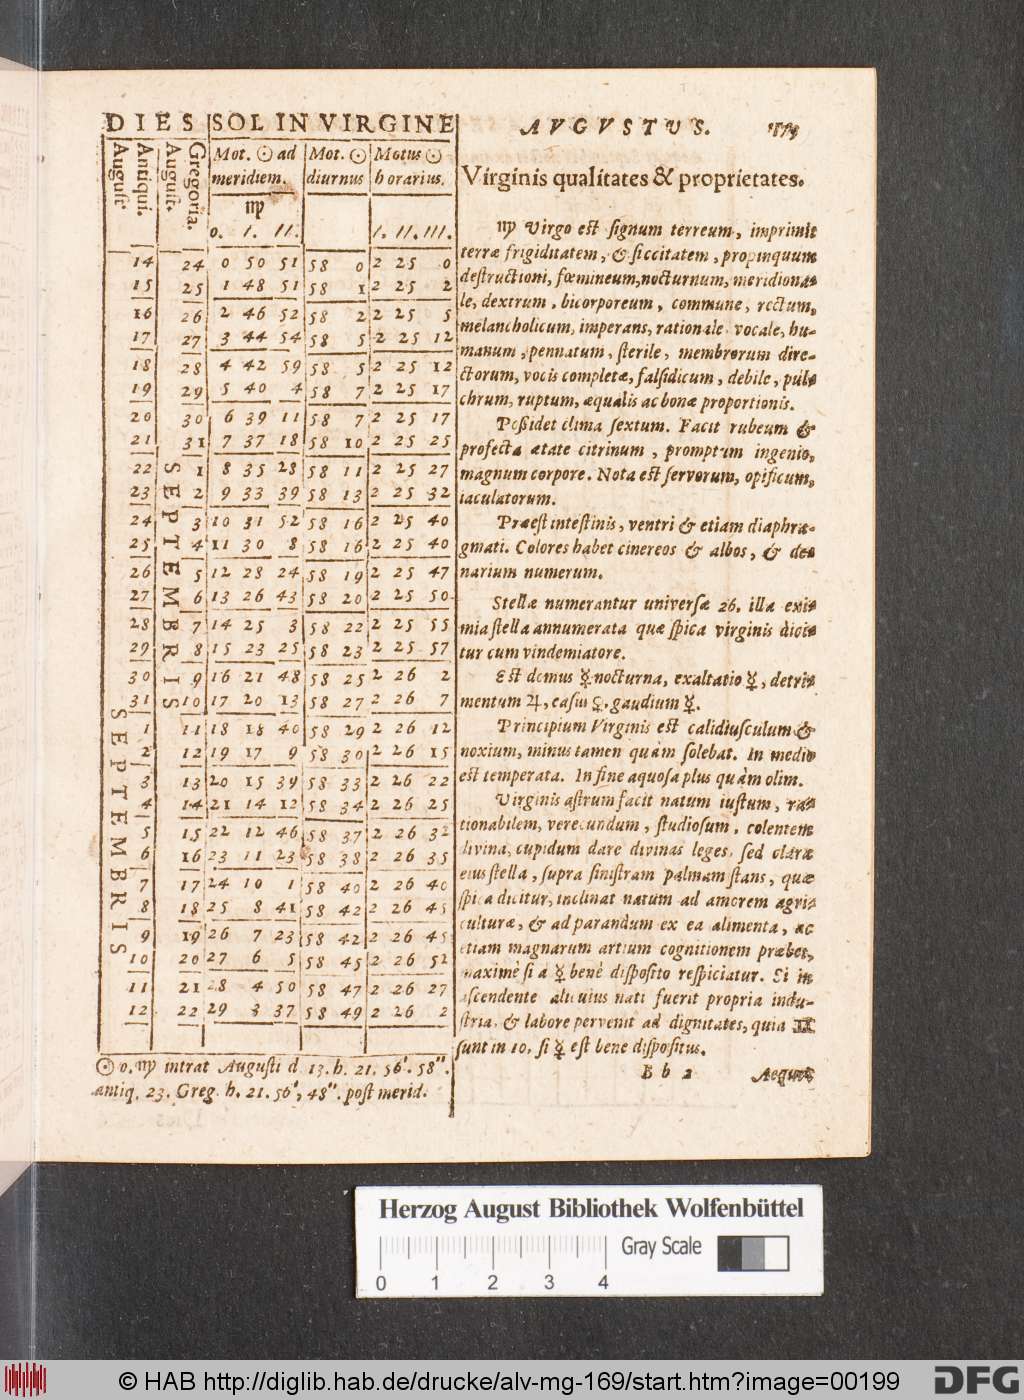 DIES SOL IN VIRGINE
Antiqui. August.
Gregoria. August.
Mot. ☉ ad meridiem.
Mot. ☉ diurnus
Motus ☉ horarius.
♍
0. I. II.
I. II. III.
14 24 0 50 51 58 0 2 25 0
15 25 1 48 51 58 1 2 25 2
16 26 2 46 52 58 2 2 25 5
17 27 3 44 54 58 5 2 25 12
18 28 4 42 59 58 5 2 25 12
19 29 5 40 4 58 7 2 25 17
20 30 6 39 11 58 7 2 25 17
21 31 7 37 18 58 10 2 25 25
SEPTEMBRIS
22 1 8 35 28 58 11 2 25 27
23 2 9 33 39 58 13 2 25 32
24 3 10 31 52 58 16 2 25 40
25 4 11 30 8 58 16 2 25 40
26 5 12 28 24 58 19 2 25 47
27 6 13 26 43 58 20 2 25 50
28 7 14 25 3 58 22 2 25 55
29 8 15 23 25 58 23 2 25 57
30 9 16 21 48 58 25 2 26 2
31 10 17 20 13 58 27 2 26 7
SEPTEMBRIS
1 11 18 18 40 58 29 2 26 12
2 12 19 17 9 58 30 2 26 15
3 13 20 15 39 58 33 2 26 22
4 14 21 14 12 58 34 2 26 25
5 15 22 12 46 58 37 2 26 32
6 16 23 11 23 58 38 2 26 35
7 17 24 10 1 58 40 2 26 40
8 18 25 8 41 58 42 2 26 45
9 19 26 7 23 58 42 2 26 45
10 20 27 6 5 58 45 2 26 52
11 21 28 4 50 58 47 2 26 27
12 22 29 3 37 58 49 2 26 2
☉ 0. ♍ intrat Augusti d. 13. h. 21. 56'. 58''.
antiq. 23. Greg. h. 21. 56', 48''. post merid.
AVGVSTVS.
Virginis qualitates & proprietates.
♍ Virgo est signum terreum, imprimit
terræ frigiditatem, & siccitatem, propinquum
destructioni, fœmineum, nocturnum, meridiona-
le, dextrum, bicorporeum, commune, rectum,
melancholicum, imperans, rationale vocale, hu-
manum, pennatum, sterile, membrorum dire-
ctorum, vocis completæ, falsidicum, debile, pul-
chrum, ruptum, æqualis ac bonæ proportionis.
Possidet clima sextum. Facit rubeum &
profecta ætate citrinum, promptum ingenio,
magnum corpore. Nota est servorum, opificum,
iaculatorum.
Præest intestinis, ventri & etiam diaphra-
gmati. Colores habet cinereos & albos, & de-
narium numerum.
Stellæ numerantur universæ 26. illa exi-
mia stella annumerata quæ spica virginis dici-
tur cum vindemiatore.
Est domus ☿ nocturna, exaltatio ☿, detri-
mentum ♃, casus ♀, gaudium ☿.
Principium Virginis est calidiusculum &
noxium, minus tamen quàm solebat. In medio
est temperata. In fine aquosa plus quàm olim.
Virginis astrum facit natum iustum, ra-
tionabilem, verecundum, studiosum, colentem
divina, cupidum dare divinas leges, sed claræ
eius stella, supra sinistram palmam stans, quæ
spica dicitur, inclinat natum ad amorem agri-
culturæ, & ad parandum ex ea alimenta, ac
etiam magnarum artium cognitionem præbet,
maximè si à ☿ benè disposito respiciatur. Si in
ascendente alicuius nati fuerit propria indu-
stria, & labore pervenit ad dignitates, quia ♊
sunt in 10. si ☿ est bene dispositus.
B b 2
Herzog August Bibliothek Wolfenbüttel
Gray Scale
0 1 2 3 4
© HAB http://diglib.hab.de/drucke/alv-mg-169/start.htm?image=00199
DFG